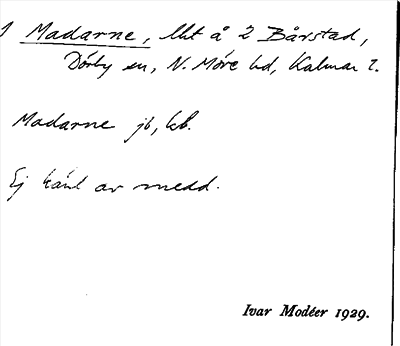 1 Madarne, lht å 2 Bårstad,
Dörby sn, N. Möre hd, Kalmar l.
Madarne jb, kb.
Ej känt av medd.
Ivar Modéer 1929.